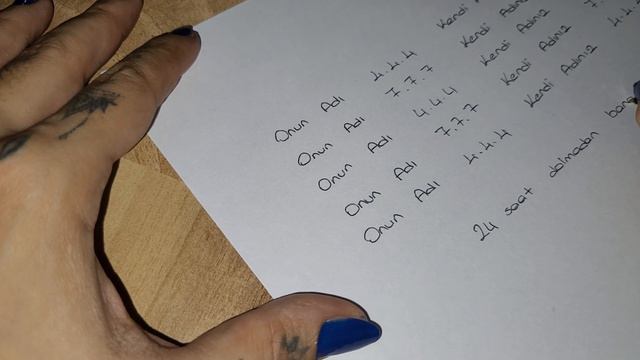 Onun Adı 4.4.4 Kendi
Onun Adı 7.7.7 Kendi Adınız 7.
Onun Adı 4.4.4 Kendi Adınız 4.4.
Onun Adı 7.7.7 Kendi Adınız
Onun Adı 4.4.4 Kendi Adınız
24 saat dolmadan bana